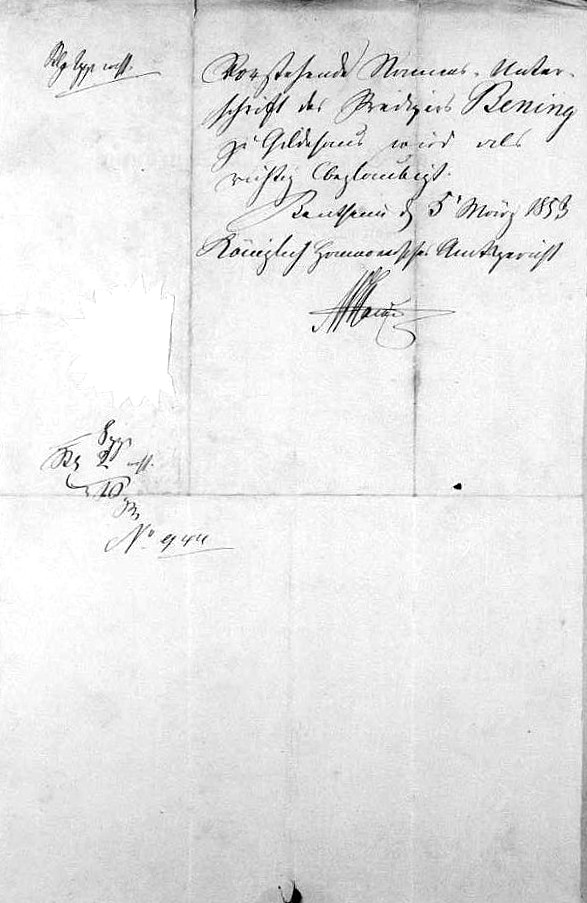 Vorstehende Namens-Unter-
schrift des Predigers Bening
zu Gildehaus wird als
richtig beglaubigt.
Bentheim d 5' März 1853
Königlich Hannoversches Amtsgericht
2
10
No 944